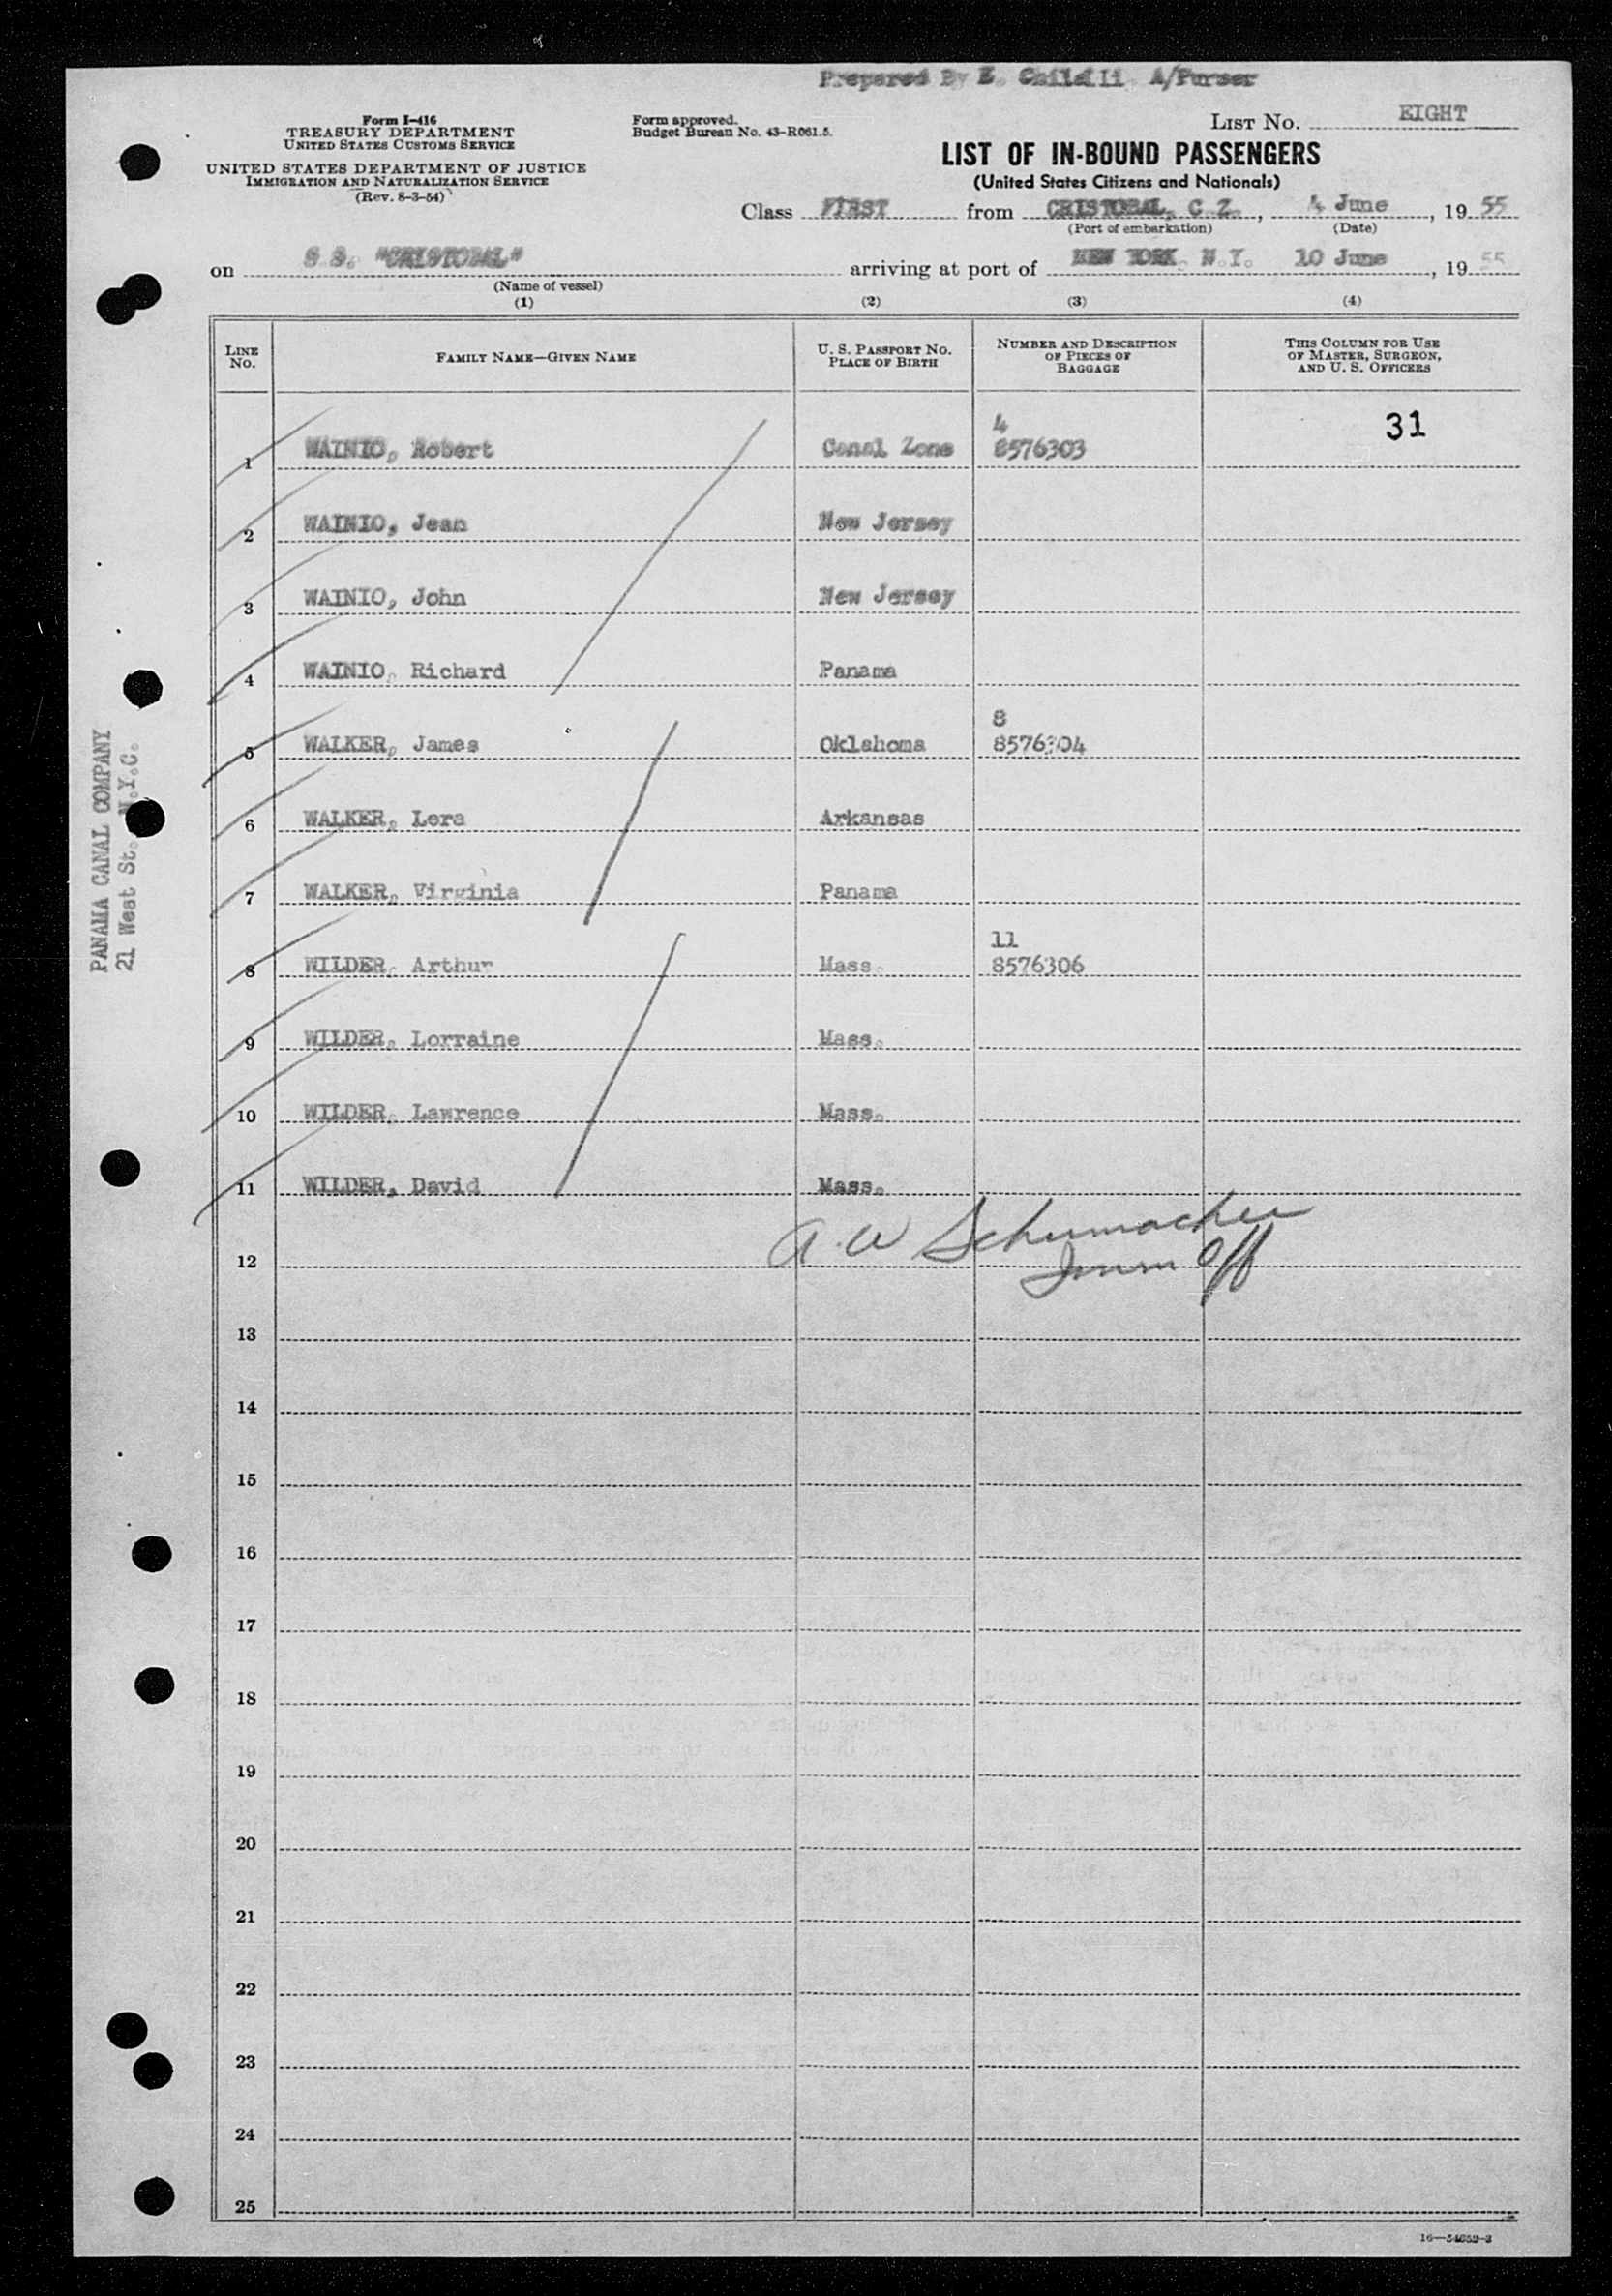 Prepared By E. Childli A/Purser
Form I-416
TREASURY DEPARTMENT
UNITED STATES CUSTOMS SERVICE
UNITED STATES DEPARTMENT OF JUSTICE
IMMIGRATION AND NATURALIZATION SERVICE
(Rev. 8-3-54)
Form approved.
Budget Bureau No. 43-R061.5.
LIST NO. EIGHT
LIST OF IN-BOUND PASSENGERS
(United States Citizens and Nationals)
Class FIRST from CRISTOBAL, C Z., 4 June, 19 55
(Port of embarkation) (Date)
on S S. "CRISTOBAL" arriving at port of NEW YORK, N.Y. 10 June, 19 55
(Name of vessel)
(1) (2) (3) (4)
LINE NO. FAMILY NAME—GIVEN NAME U. S. PASSPORT NO. PLACE OF BIRTH NUMBER AND DESCRIPTION OF PIECES OF BAGGAGE THIS COLUMN FOR USE OF MASTER, SURGEON, AND U. S. OFFICERS
4 31
1 WAINIO, Robert Canal Zone 8576303
2 WAINIO, Jean New Jersey
3 WAINIO, John New Jersey
4 WAINIO, Richard Panama
8
5 WALKER, James Oklahoma 8576304
6 WALKER, Lera Arkansas
7 WALKER, Virginia Panama
11
8 WILDER, Arthur Mass. 8576306
9 WILDER, Lorraine Mass.
10 WILDER, Lawrence Mass.
11 WILDER, David Mass.
A. W Schumacher
12 Imm Off
13
14
15
16
17
18
19
20
21
22
23
24
25
PANAMA CANAL COMPANY
21 West St. N.Y.C.